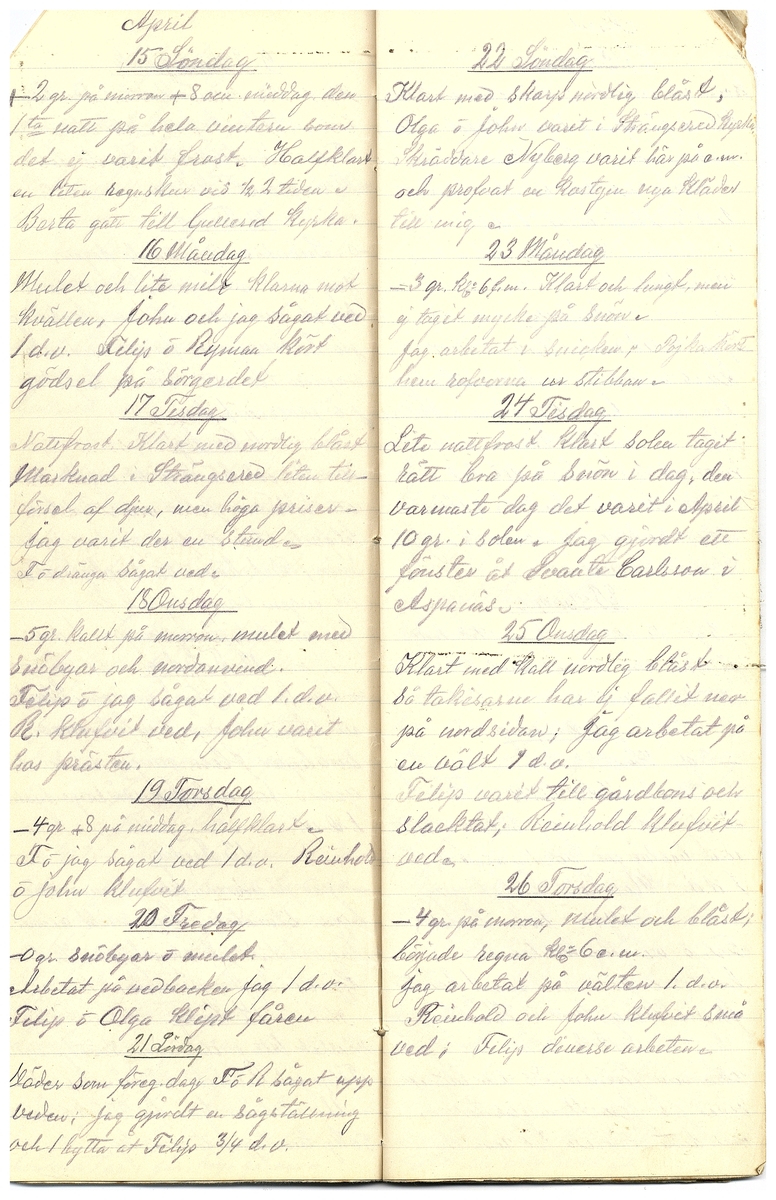 April
15 Söndag
+2 gr. på morron +8 om middag den
1sta natt på hela vintern som
det ej varit frost. Halfklart
en liten regnskur vid ½ 2 tiden.
Berta gått till Gullered kyrka.
16 Måndag
Mulet och lite milt klarna mot
kvällen, John och jag sågat ved
1 d.v. Filip ö Ryman kört
gödsel på Sörgerdet
17 Tisdag
Nattfrost. Klart med nordlig blåst
Marknad i Strängsered liten till-
försel af djur, men höga priser.
Jag varit der en stund.
F ö dränga sågat ved.
18 Onsdag
-5 gr. kallt på morron, mulet med
snöbyar och nordanvind.
Filip ö jag sågat ved 1 d.v.
R. klufvit ved, John varit
hos prästen.
19 Torsdag
-4 gr +8 på middag. halfklart.
F ö jag sågat ved 1 d.v. Reinhold
ö John klufvit
20 Fredag
-0 gr. snöbyar ö mulet.
Arbetat på vedbacken jag 1 d.v.
Filip ö Olga klipt fåren
21 Lördag
Väder som föreg. dag. F ö R sågat upp
veden; jag gjordt en sågställning
och 1 hytta åt Filip 3/4 d.v.
22 Söndag
Klart med skarp nordlig blåst;
Olga ö John varit i Strängsered kyrka
Skräddare Nyberg varit här på e.m.
och profvat en kostym nya kläder
till mig.
23 Måndag
-3 gr. kl. 6 f.m. Klart och lungt, men
ej taget mycke på snön.
Jag arbetat i snicken, Pojka kört
hem rofvorna ur stibban.
24 Tisdag
Lite nattfrost klart solen taget
rätt bra på snön i dag, den
varmaste dag det varit i April
10 gr. i solen. jag gjordt ett
fönster åt Svante Carlsson i
Aspanäs.
25 Onsdag
Klart med kall nordlig blåst
så takisarne har ej fallit ner
på nordsidan; Jag arbetat på
en vält 1 d.v.
Filip varit till gårdbons och
slacktat; Reinhold klufvit
ved.
26 Torsdag
-4 gr. på morron, mulet och blåst;
började regna kl. 6 e.m.
jag arbetat på välten 1. d.v.
Reinhold och John klufvit små
ved; Filip diverse arbeten.